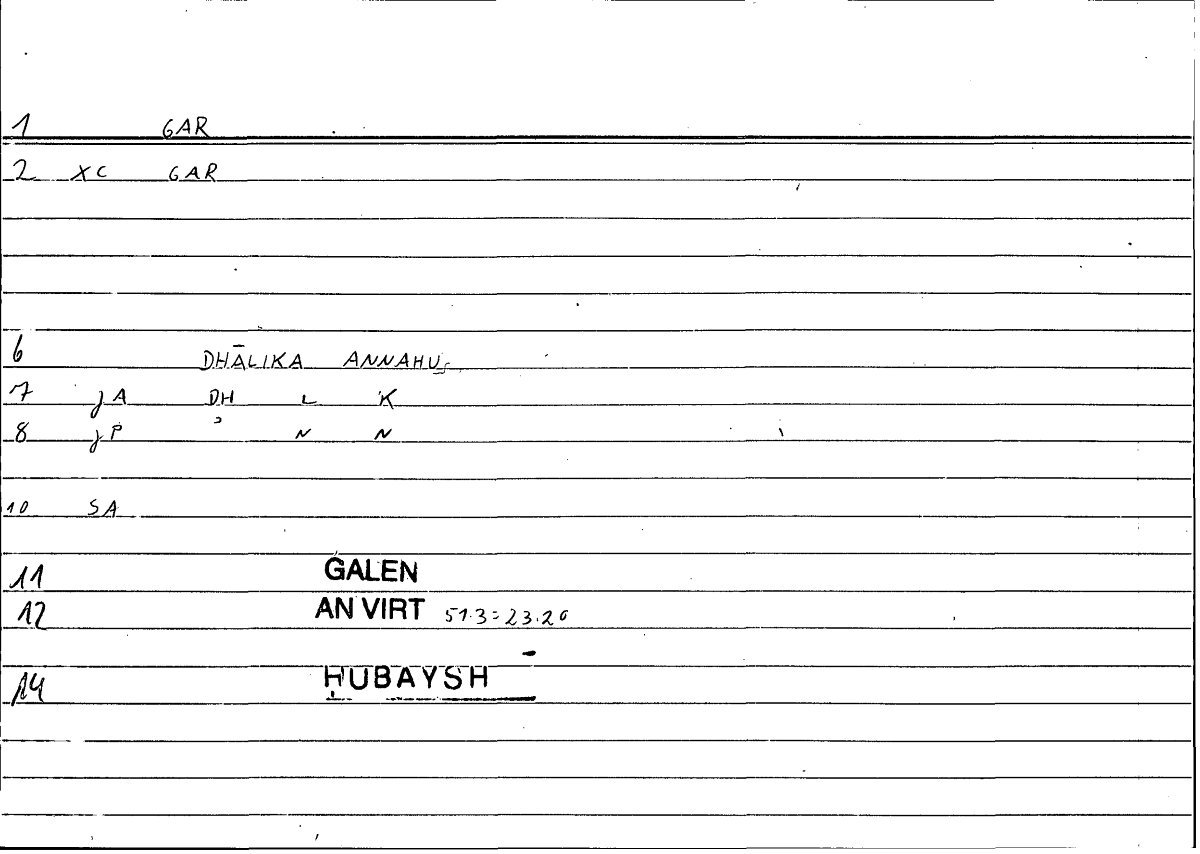 1 GAR
2 XC GAR
6 DHĀLIKA ANNAHU
7 JA DH L K
8 JP ʾ N N
10 SA
11 GALEN
12 AN VIRT 51.3=23.20
14 ḤUBAYSH